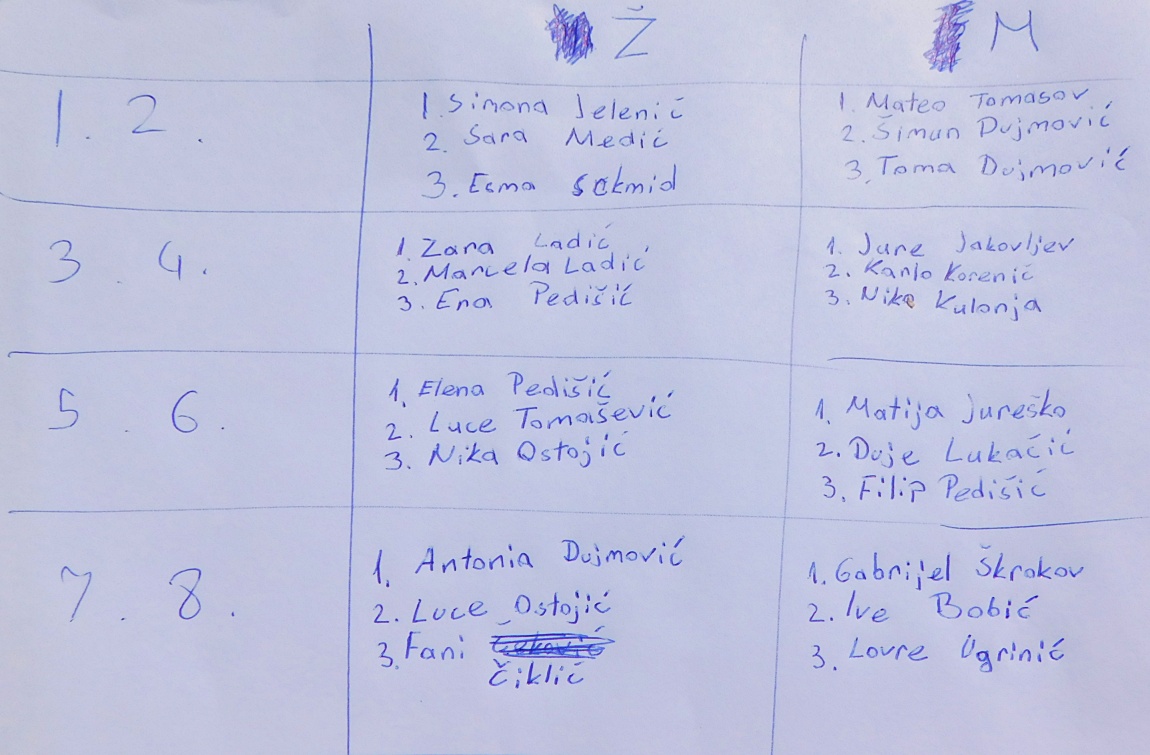 Ž M
1. 2.
1. Simona Jelenić
2. Sara Medić
3. Esma Sckmid
1. Mateo Tomasov
2. Šimun Dujmović
3. Toma Dujmović
3. 4.
1. Zara Ladić
2. Marcela Ladić
3. Ena Pedišić
1. Jure Jakovljev
2. Karlo Korenić
3. Niko Kulonja
5. 6.
1. Elena Pedišić
2. Luce Tomašević
3. Nika Ostojić
1. Matija Jureško
2. Duje Lukačić
3. Filip Pedišić
7. 8.
1. Antonia Dujmović
2. Luce Ostojić
3. Fani
Čiklić
1. Gabrijel Škrokov
2. Ive Bobić
3. Lovre Ugrinić